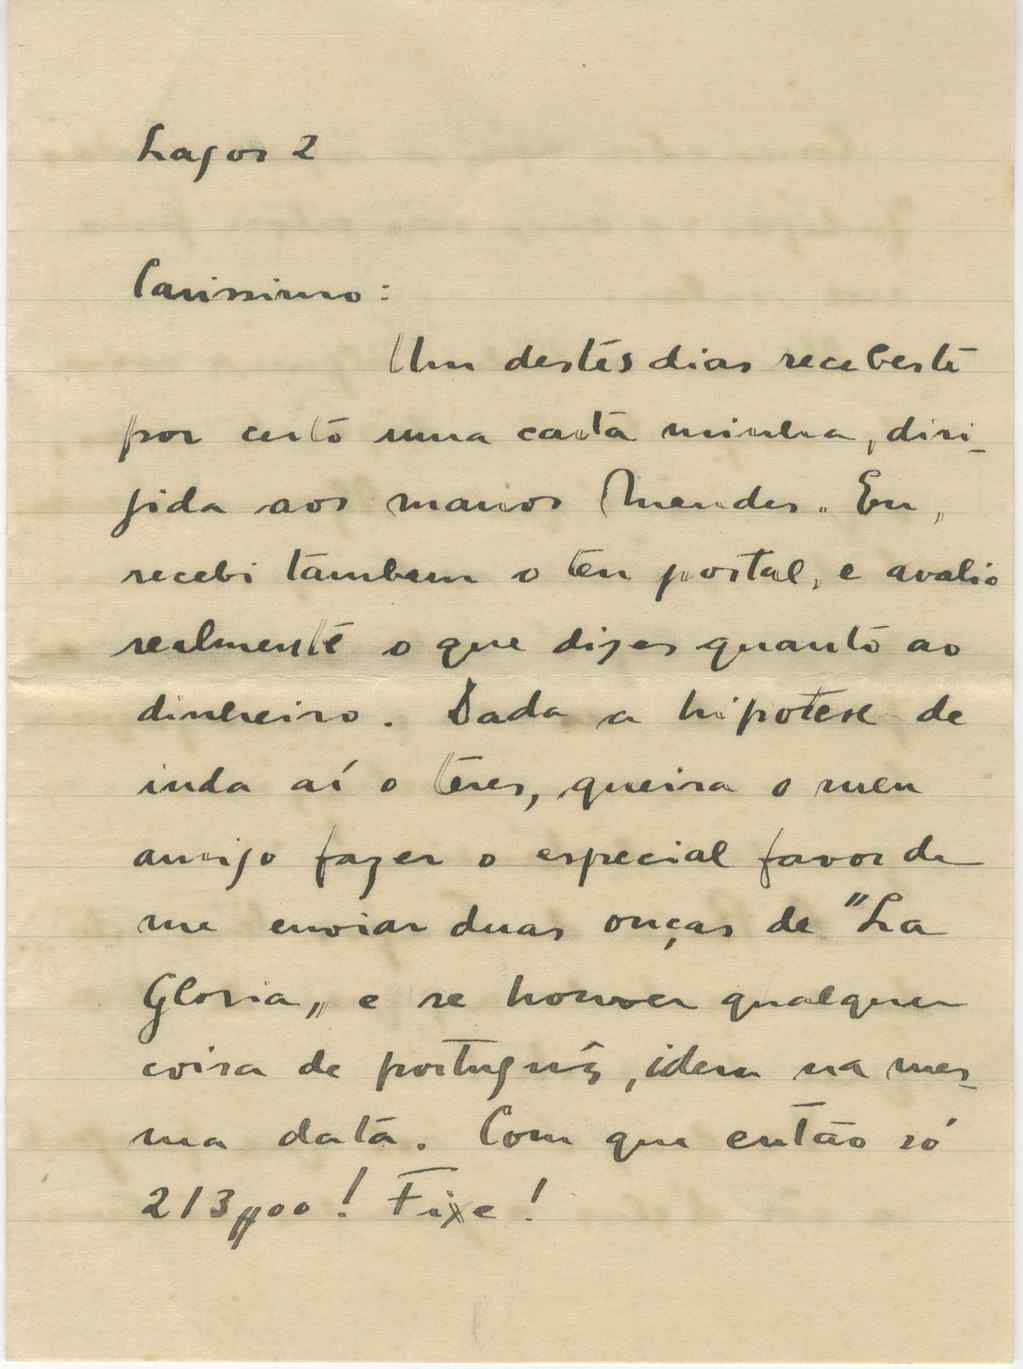 Lagos 2
Carissimo:
Um destes dias recebeste
por certo uma carta minha, diri-
gida aos manos Mendes. Eu,
recebi tambem o teu postal, e avalio
realmente o que dizes quanto ao
dinheiro. Dada a hipotese de
inda aí o teres, queira o meu
amigo fazer o especial favor de
me enviar duas onças de "La
Gloria„ e se houver qualquer
coisa de português, idem na mes-
ma data. Com que então só
213$00! Fixe!